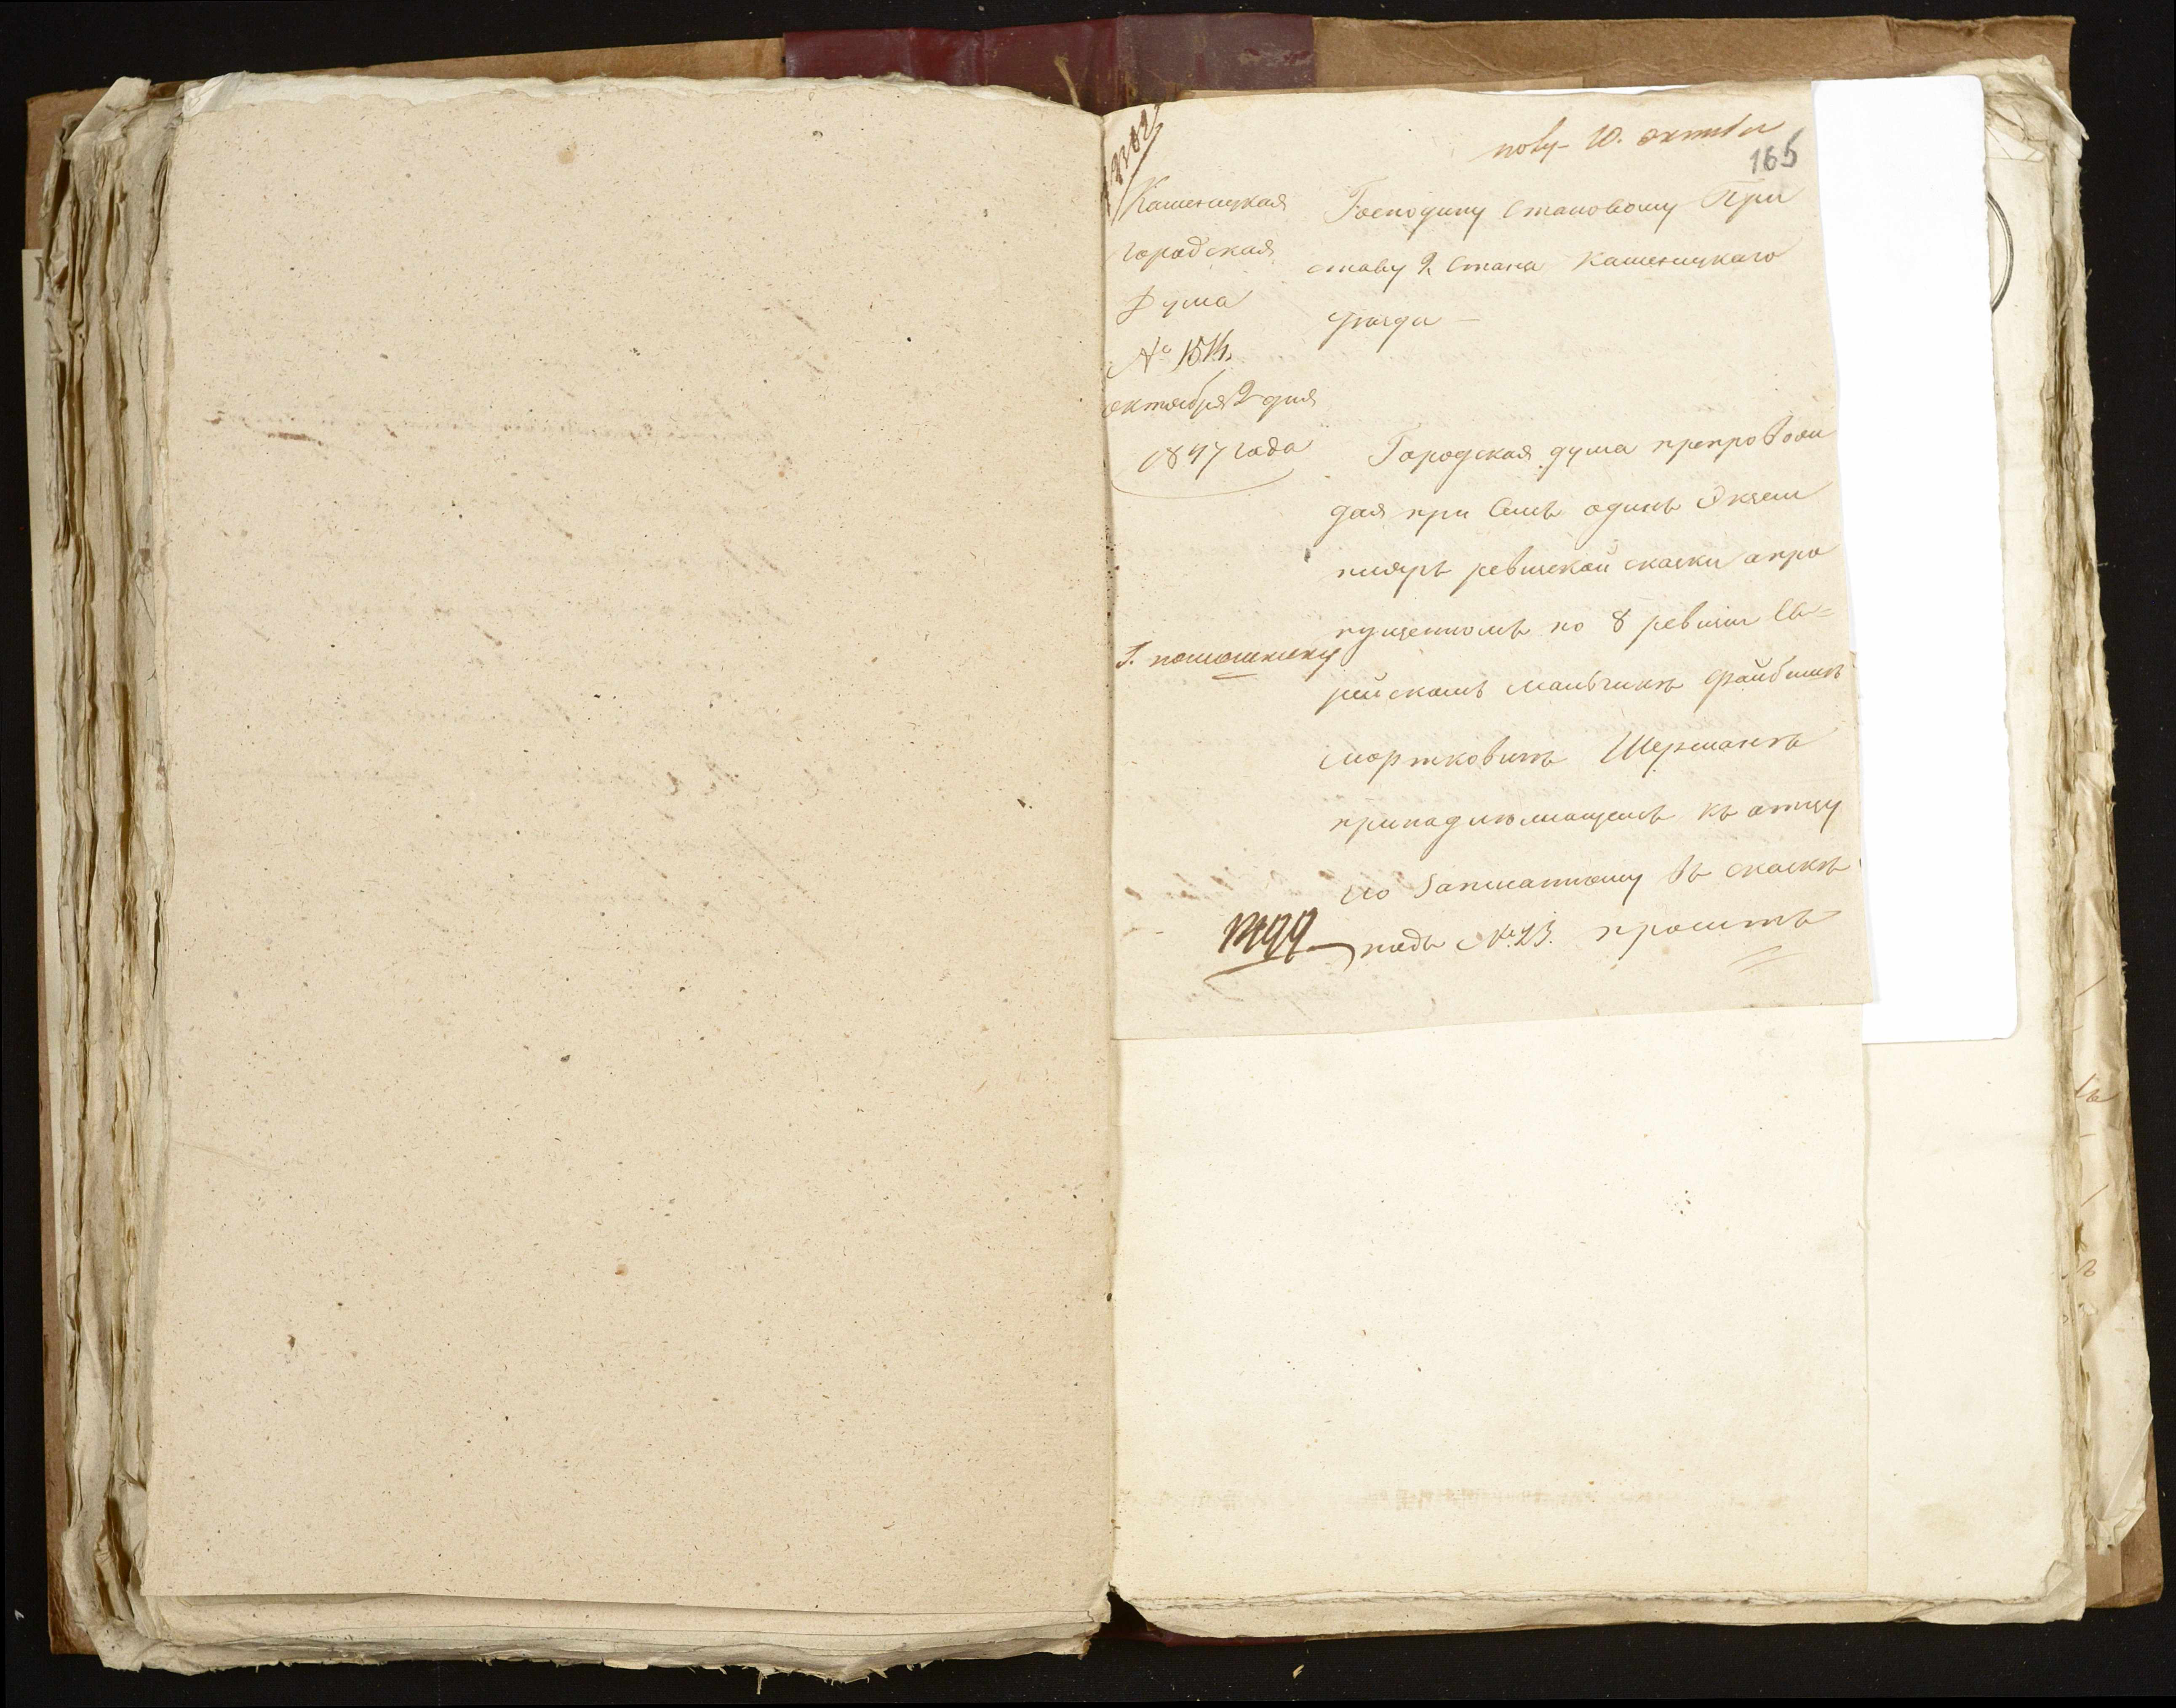 полу- 10. октября
165
Каменецкая
городская
Дума
№ 1514.
октября 2 дня
1847 года
Господину Становому При
ставу 2 Стана Каменецкаго
уезда -
Городская дума препровож
дая при семъ одинъ Экзем
пляръ ревизской сказки о про
пущенномъ по 8 ревизии Ев=
рейскомъ мальчике Файбише
Мортковиче Шермане
принадлежащемъ къ отцу
его записанному въ сказке
подъ № 23. проситъ
Г. помошнику